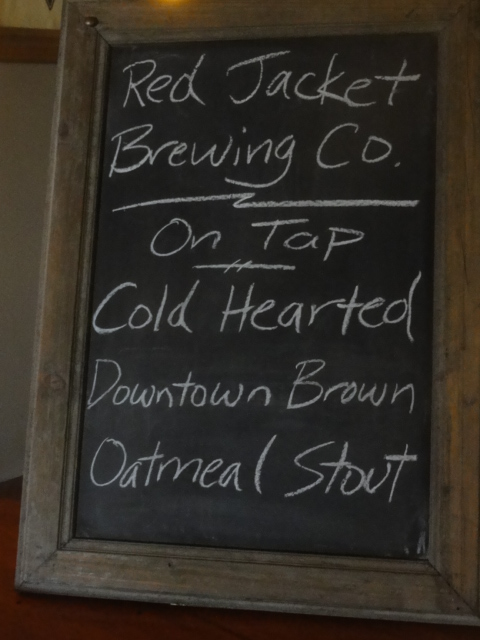 Red Jacket
Brewing Co.
On Tap
Cold Hearted
Downtown Brown
Oatmeal Stout